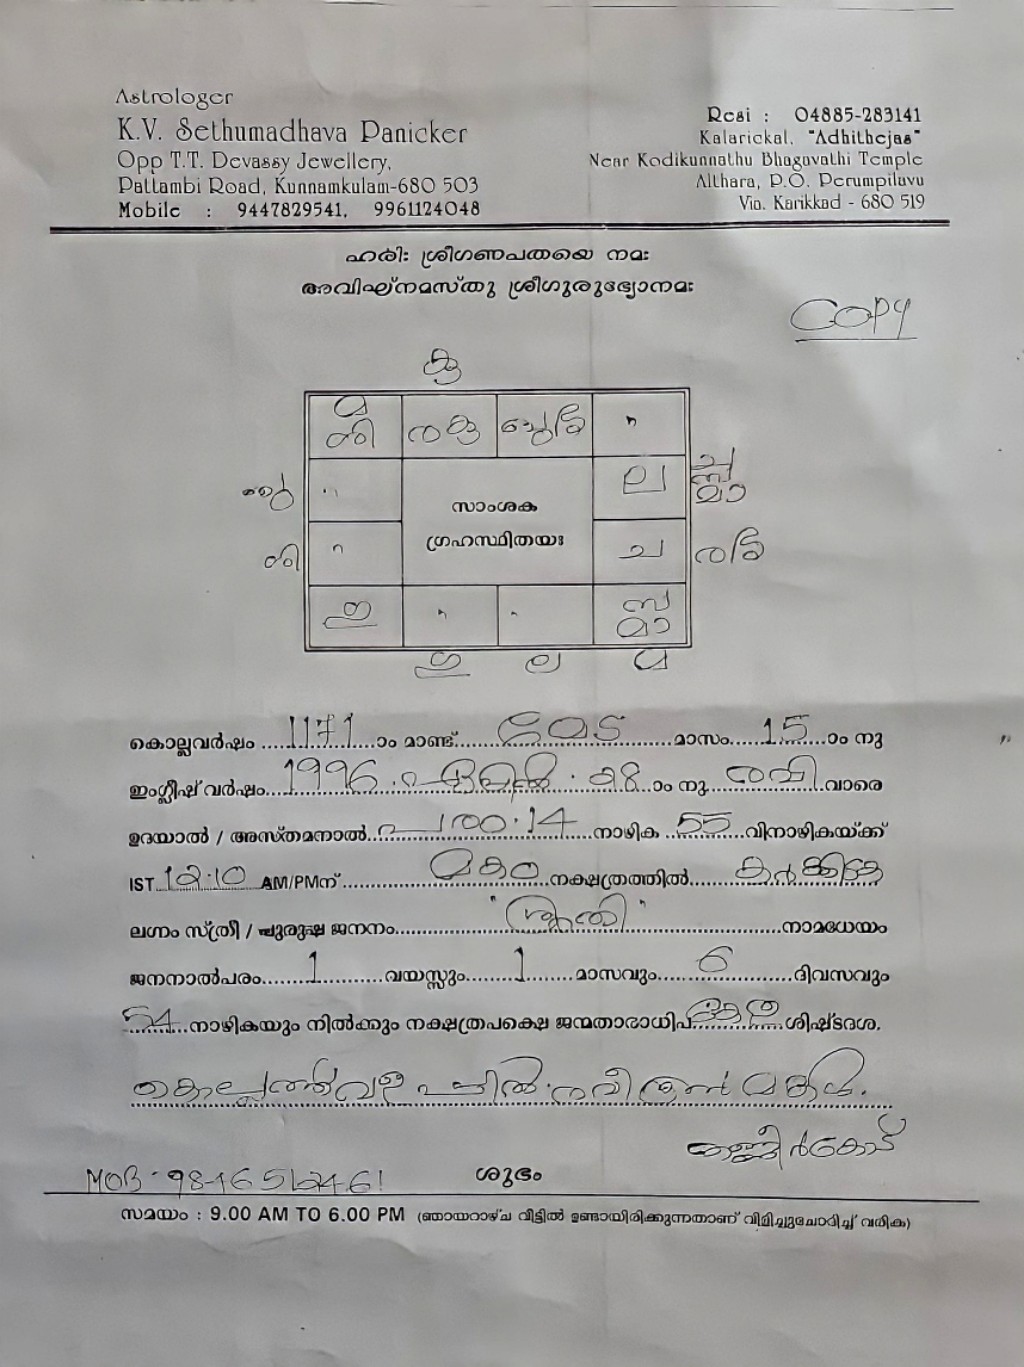 Astrologer
K.V. Sethumadhava Panicker
Opp T.T. Devassy Jewellery,
Pattambi Road, Kunnamkulam-680 503
Mobile : 9447829541, 9961124048
Resi : 04885-283141
Kalarickal, "Adhithejas"
Near Kodikunnathu Bhagavathi Temple
Althara, P.O. Perumpilavu
Via. Karikkad - 680 519
ഹരി: ശ്രീഗണപതയെ നമ:
അവിഘ്നമസ്തു ശ്രീഗുരുഭ്യോനമ:
COPY
കു
മ ശി
രകു
ബുശു
"
ഗു
"
ല
മാ
സാംശക
ഗ്രഹസ്ഥിതയഃ
ശി
"
ച
ഗു
"
"
സ മാ
ഗു
ല
മ
കൊല്ലവർഷം 1171 ാം മാണ്ട് മേട മാസം 15 ാം നു
ഇംഗ്ലീഷ് വർഷം 1996 ഏപ്രിൽ 28 ാം നു രവി വാരെ
ഉദയാൽ / അസ്തമനാൽ 14 നാഴിക 55 വിനാഴികയ്ക്ക്
IST 12.10 AM/PM ന് മകം നക്ഷത്രത്തിൽ കർക്കിടക
ലഗ്നം സ്ത്രീ / പുരുഷ ജനനം "ശ്രുതി" നാമധേയം
ജനനാൽപരം 1 വയസ്സും 1 മാസവും 6 ദിവസവും
54 നാഴികയും നിൽക്കും നക്ഷത്രപക്ഷെ ജന്മതാരാധിപ കേതു ശിഷ്ടദശ.
മകൾ.
MOB
ശുഭം
സമയം : 9.00 AM TO 6.00 PM (ഞായറാഴ്ച വീട്ടിൽ ഉണ്ടായിരിക്കുന്നതാണ് വിളിച്ചുചോദിച്ച് വരിക)